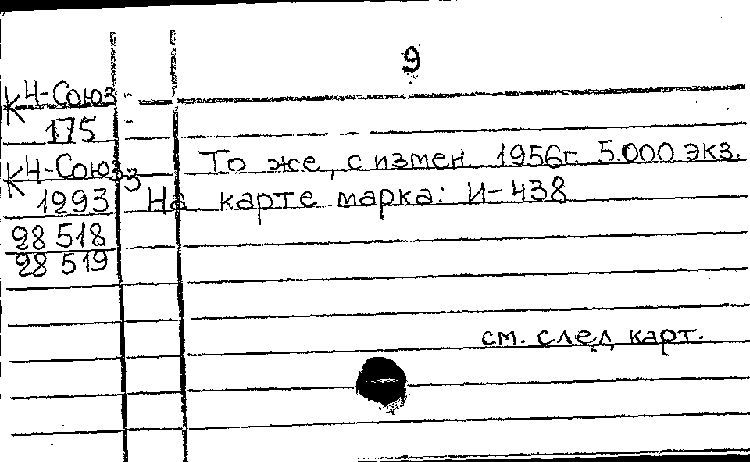 9
К Ч-Союз
175
К Ч-Союз
3
1293
28 518
28 519
То же, с измен 1956г 5.000 экз.
На карте марка: И-438
см. след карт.